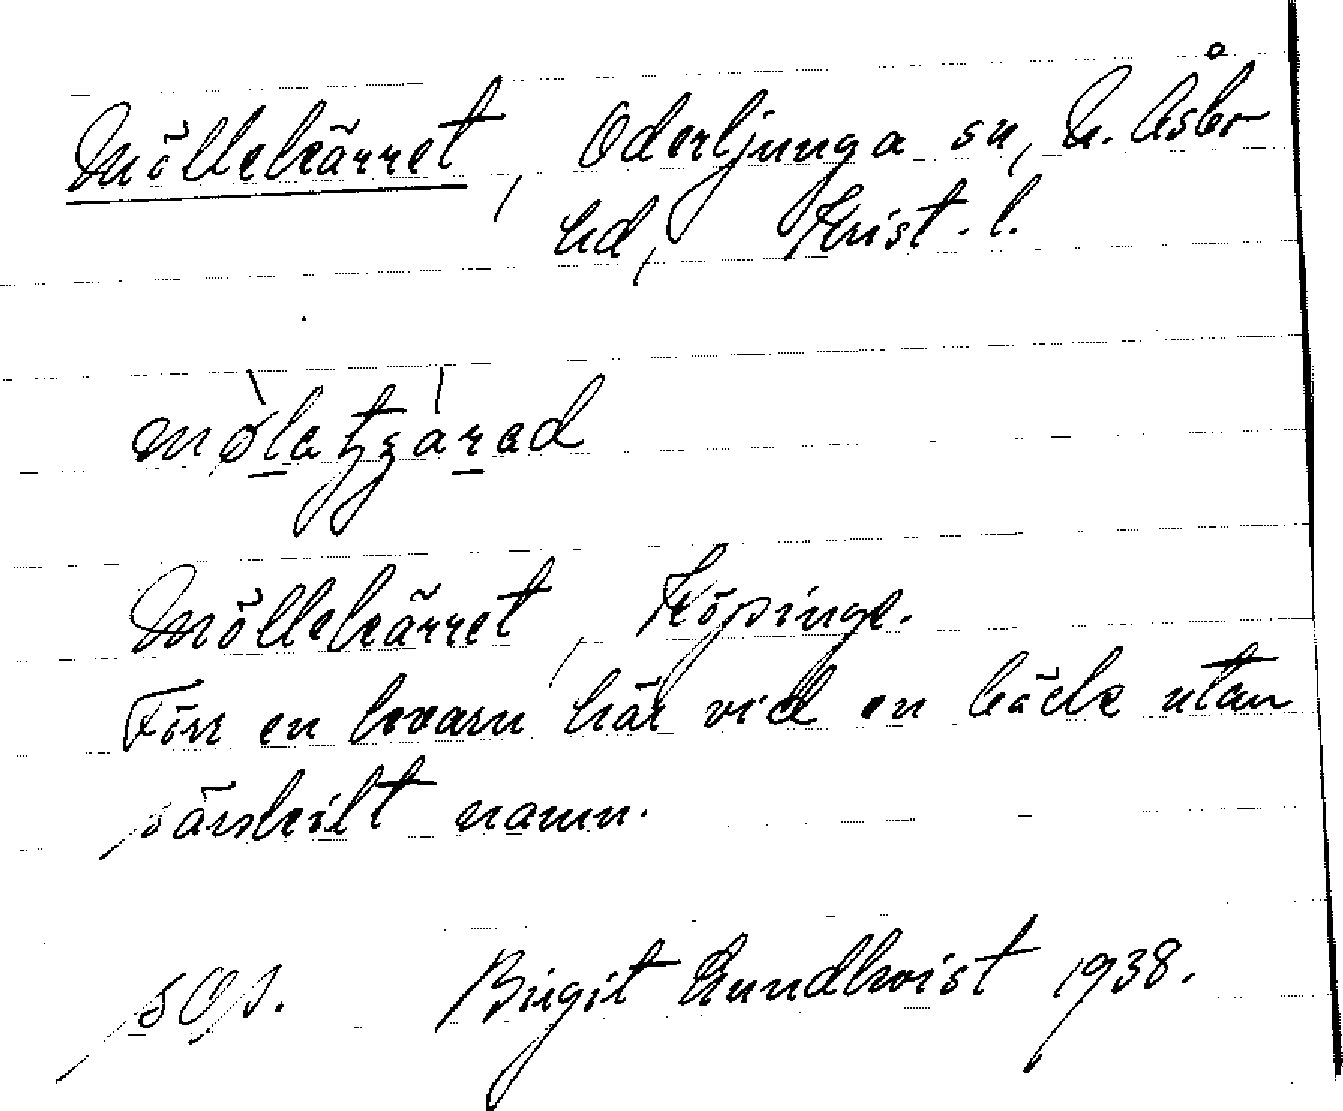 Möllekärret, Oderljunga sn, N. Åsbo
hd, Krist. l.
Möllekärret, Köpinge.
Förr en kvarn här vid en bäck utan
särskilt namn.
Birgit Lundkvist 1938.